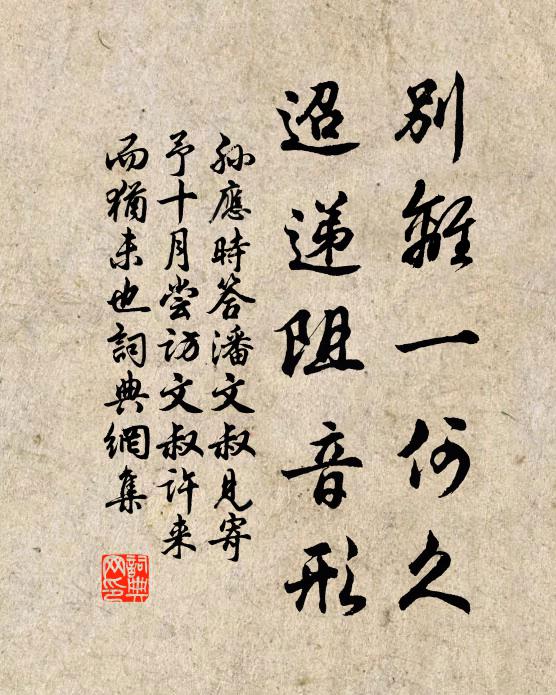 別離一何久
迢遞阻音形
孫應時答潘文叔見寄
予十月嘗訪文叔許来
而猶未也詞典網集
詞典
网印